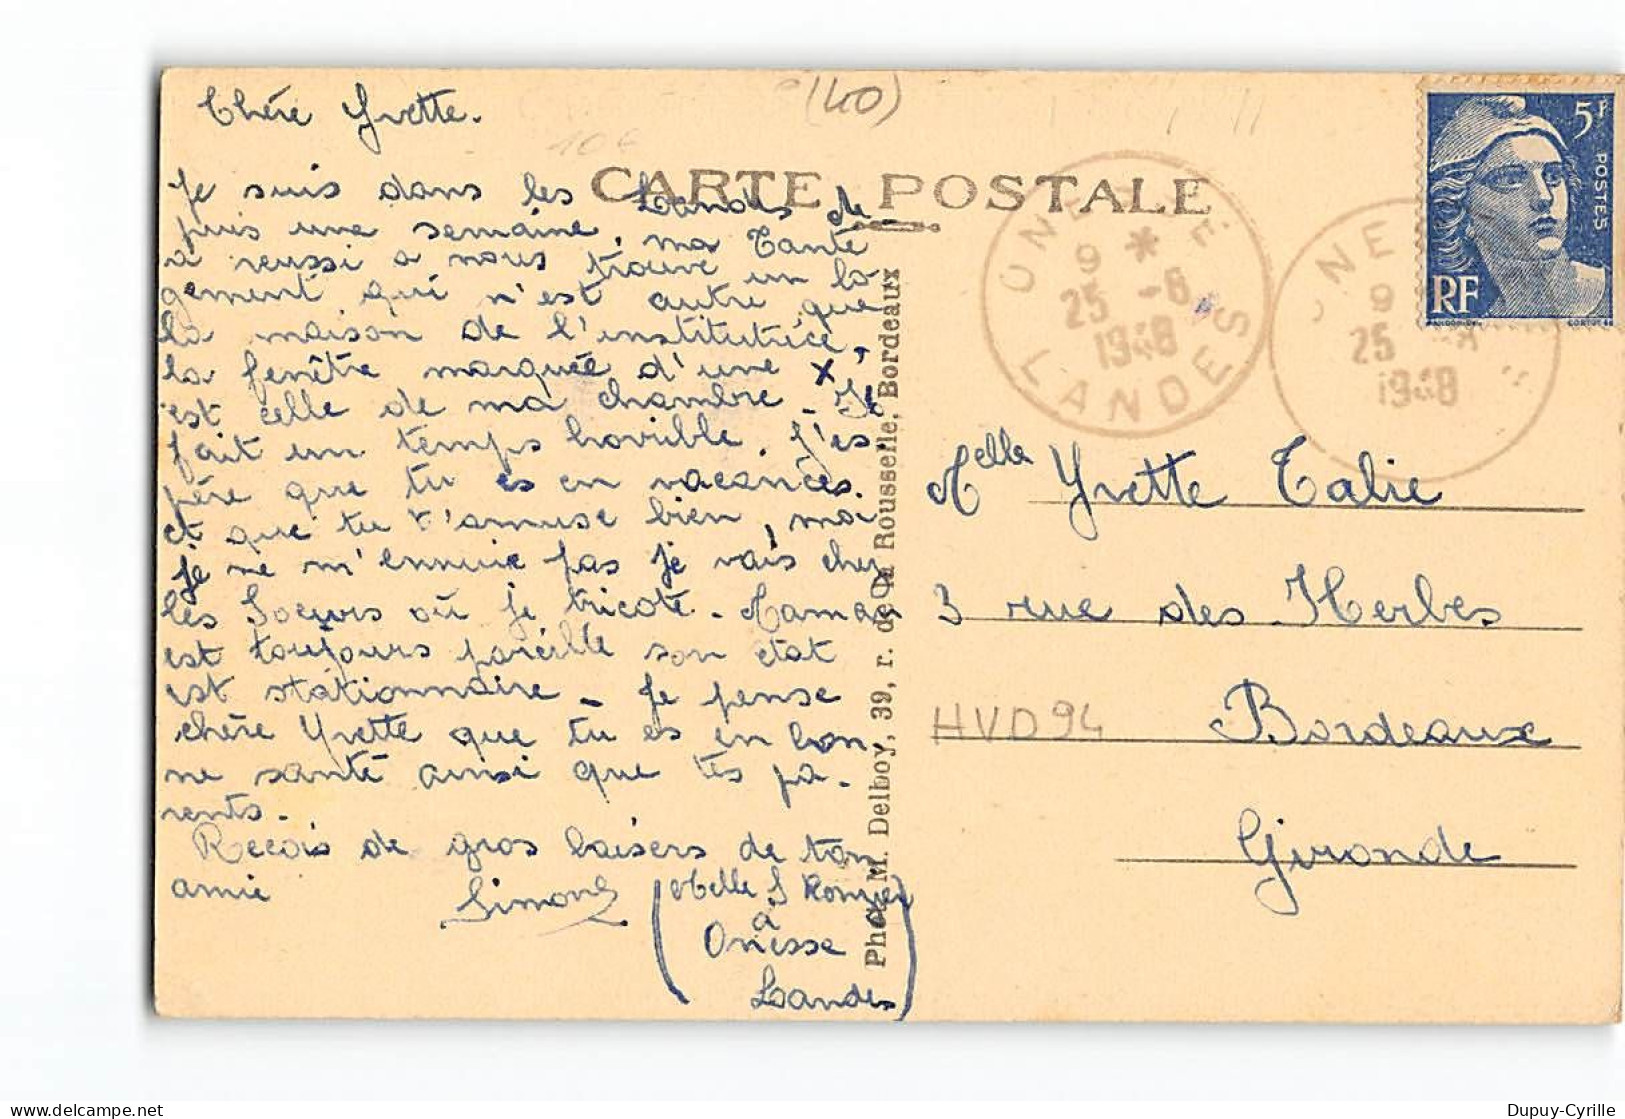 (40)
Chère Yvette.
10€
CARTE POSTALE
Je suis dans les Landes de
puis une semaine, ma Tante
a reussi a nous trouve un lo-
gement qui n'est autre que
la maison de l'institutrice,
la fenêtre marquée d'une x,
est celle de ma chambre - Il
fait un temps horrible. J'es-
père que tu es en vacances.
et que tu t'amuse bien, moi
je ne m'ennuie pas je vais chez
les Soeurs où je tricote - Maman
est toujours pareille son etat
est stationnaire - Je pense
chère Yvette que tu es en bon
ne santé ainsi que tes pa-
rents.
Recois de gros baisers de ton
amie Simone
(Melle S
à
Onesse
Landes)
Phot. M. Delboy, 39, r. de la Rousselle, Bordeaux
5F
POSTES
RF
ONESSE
9 *
25 -8
1948
LANDES
ONE
9
25
1948
Melle Yvette Talie
3 rue des Herbes
Bordeaux
HVD94
Gironde
Dupuy-Cyrille